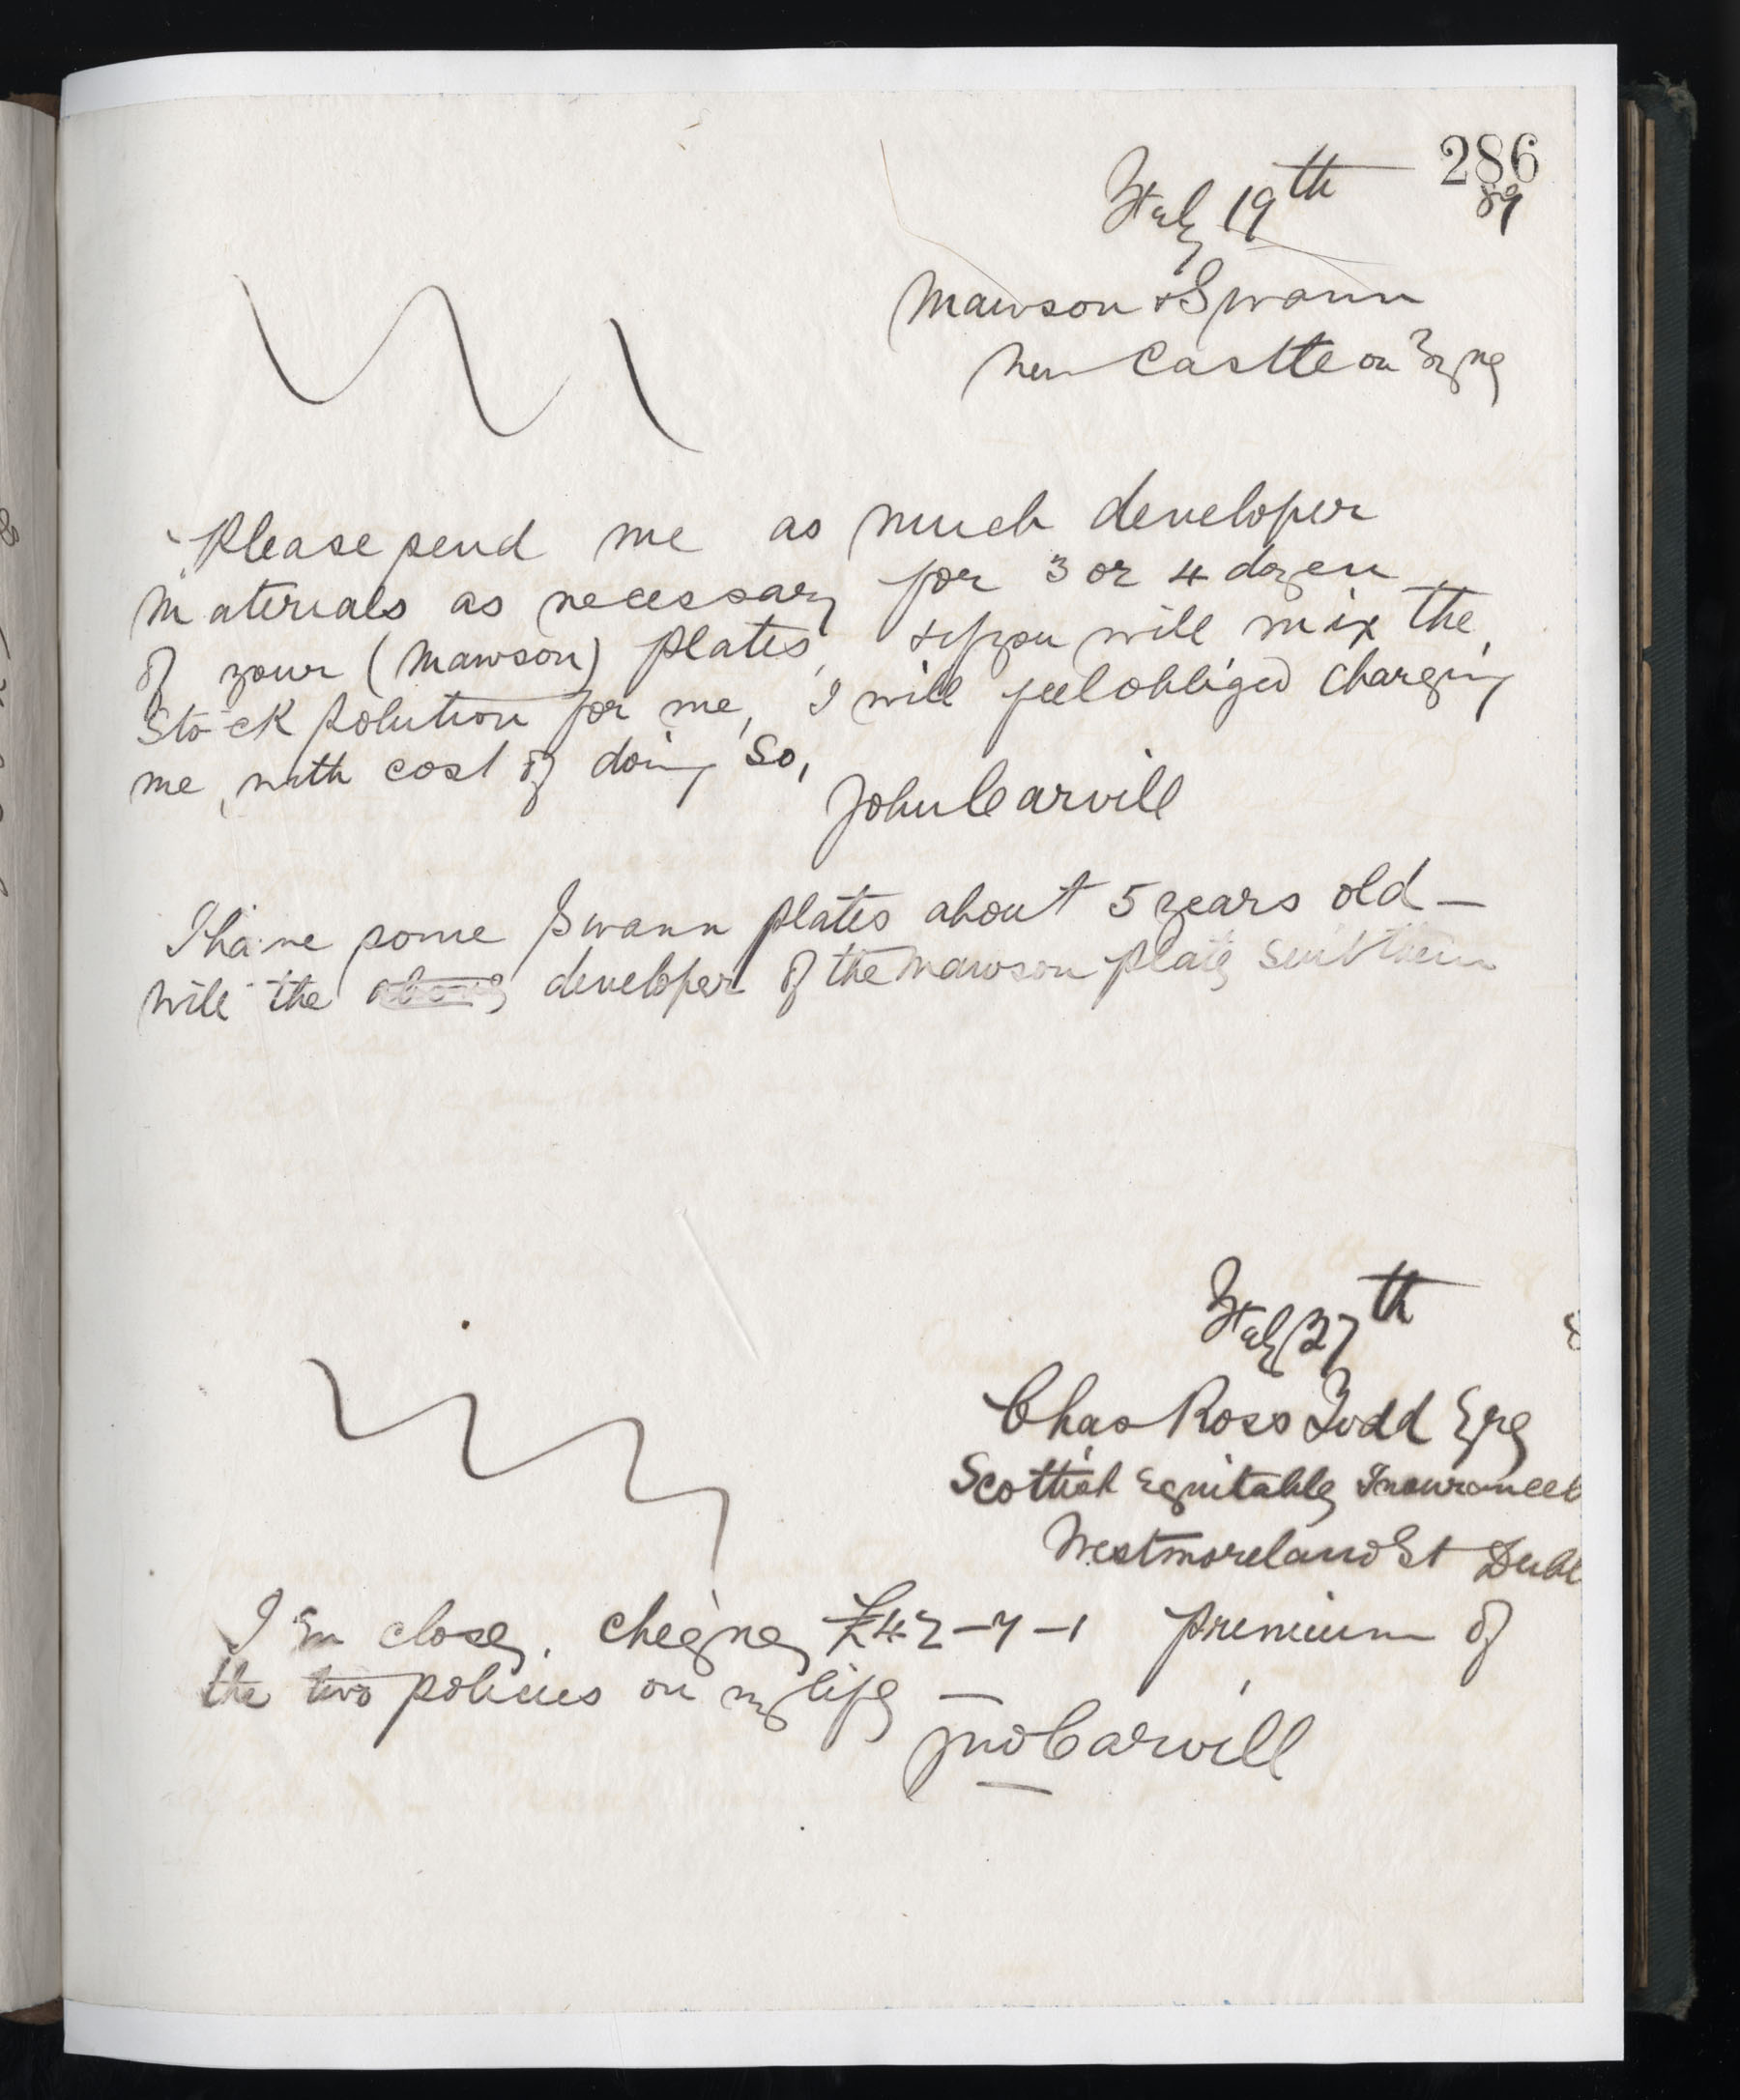 286
Feby 19th 89
Mawson & Swann
New Castle on Tyne
Please send me as much developer
materials as necessary for 3 or 4 dozen
of your (Mawson) plates, & if you will mix the
Stock solution for me, I will feel obliged charging
me, with cost of doing so,
John Carvill
I have some Swann plates about 5 years old —
will the above developer of the Mawson plate suit them
Feby 27th 8
Chas Ross Todd Esq
Scottish Equitable Insurance C
Westmoreland St Dubl
I Enclose, cheque £42-7-1 premium of
the two policies on my life —
Jno Carvill